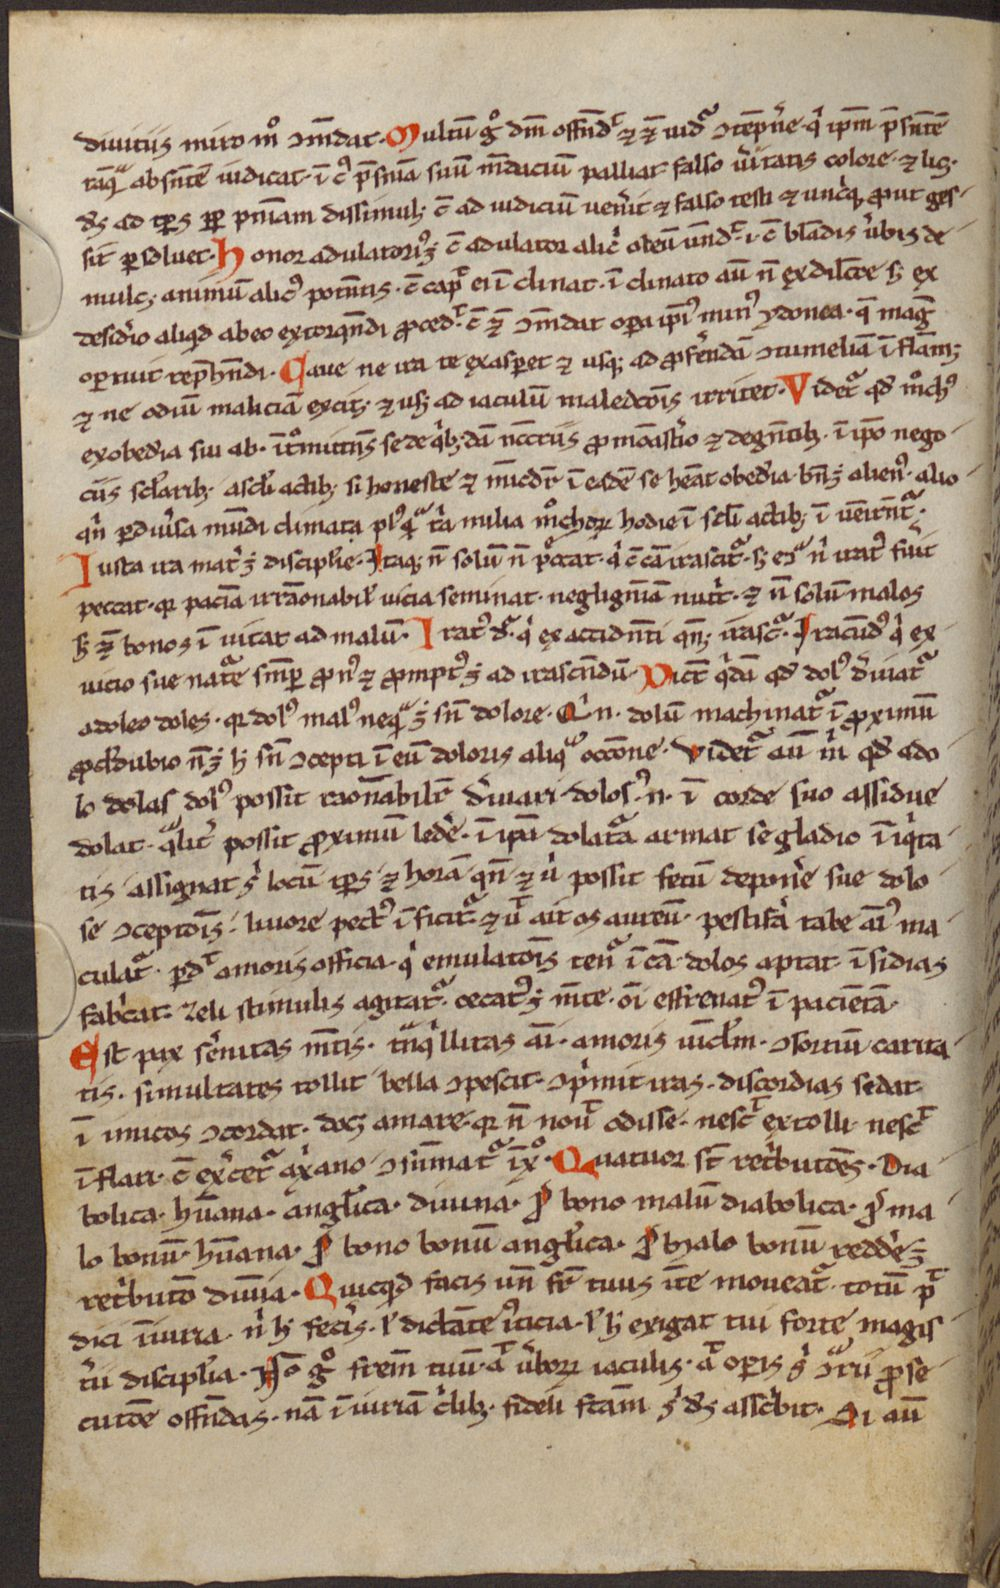 diuitiis miro mͦ ꝯm̄dat. Multū gͦ dm̄ offn̄dᷓ ⁊ ⁊̄ uidᷓ ꝯtēpn̄e. qͥ ipm̄ p̄sn̄tē
tāqᷓ absn̄tē iudicat. ī cͥ p̄sn̄ia suū m̄daciū palliat falso ūitatis colore. ⁊ lic
ds̄ ad tp̄s ꝑꝑ pn̄iam dissimul; c̄ ad iudiciū uen̄it ⁊ falso testi ⁊ ꝓut ges
sit ꝑsoluet. Honor adulatoriꝰ ē adulator alicͥ .i. c̄ blādis ūbis de
mulc; animū alicꝰ potn̄tis. c̄ capͩ ei ī clinat. ī clinato aū n̄ ex dilcōe s; ex
desidīo aliqͥd ab eo extorqn̄di ꝓced. c̄ ⁊̄ ꝯm̄dat oꝑa ipīꝰ minꝰ ydonea. q̄ mag̃
oportuit rep̄hn̄di. Caue ne ira te exasꝑet ⁊ usq; ad ꝓfer̄ndā ꝯtumeliā īflām;
⁊ ne odiū maliciā excit; ⁊ us; ad iaculū maledcōis irritet. Videtᷓ qd̄ mͦchꝰ
ex obed̄ia sui ab. īt̄mittn̄s se de qͥb;dā nēcīis ꝓ monast̄io ⁊ degn̄tib;. ī ipō nego
ciis sclārib;. ascīi actib; si honeste ⁊ ī eadē se heāt obed̄ia. alienꝰ. alio
qͥn ꝑ diūsa mūdi climata plꝰqᷓ t̄a milia mͦchoꝝ hodie ī scl̄i actib; ī uēirn̄tᷓ.
Iusta ira mat̄ ē discipl̄ie. Itaq; n̄ solū n̄ peccat. qͥ c̄ cā irascitᷓ. s; eͩ nͥ iratꝰ fūit
peccat. qr pacīa irrāonabil̄ uicia seminat. neglignīam nutͥt. ⁊ n̄ solū malos
s; ⁊̄ bonos ī uitat ad malū. Iratꝰ dᷓ. qͥ ex accidn̄ti qn̄; irascᷓ. Iracūdꝰ qͥ ex
uicio sue natᷓe smꝑ ꝓnꝰ ⁊ ꝓmptꝰ ē ad irascn̄dū. Dicūt qͥdā qd̄ dolꝰ dͥuiatᷓ
a doleo doles. qr dolꝰ malꝰ neqᷓ ē sn̄ dolore. Qͥ n. dolū machinatᷓ ī ꝓximū
ꝓcl̄dubio n̄ ē h̄ sn̄ ꝯcepti ī eū doloris aliqᷓ occōne. Videtᷓ aū m̄ qd̄ a do
lo dolas dolꝰ possit raonabilr̄ dͥuari. dolosꝰ. n. ī corde suo assidue
dolat. qᷓlit̄ possit ꝓximū ledͤe. ī ip̄a dolatᷓa armat se gladio ī iqͥta
tis assignat sͥ locū tp̄s ⁊ horā qn̄ ⁊ uͥ possit fetū depon̄e sue dolo
se ꝯceptōis. liuore pectꝰ ī ficitᷓ ⁊ ut ait os aureū. pestifͣa tabe aīꝰ ma
culatᷓ. ꝑdᷓ amoris officia. qͥ emulatōis tenᷓ ī cā. dolos aptat īsidias
fabͥcat. zeli stimulis agitatᷓ. cecatꝰ ē mte. oī effrenatꝰ ī pacīetā.
Est pax serͤnitas mn̄tis. tᷓnqͥllitas aī. amoris uīcl̄m. ꝯsortiū carita
tis. simultates tollit bella ꝯpescit. ꝯpͥmit iras. discordias sedat.
ī imicos ꝯcordat. doc; amare. qr n̄ nouᷓ odisse. nescᷓ extolli. nescᷓ
īflari. c̄ ex̄cetᷓ ax̄ano ꝯsūmatᷓ īxͦ. Quatuor sūt ret̄butōes. Dia
bolica. hūana. angl̄ica. diuina. ꝓ bono malū diabolica. ꝓ ma
lo bonū. hūana. ꝓ bono bonū angl̄ica. ꝓ malo bonū reddͤe ē
ret̄butō diuīa. Quicqͥd facis un̄ fr̄ tuus īte moueatᷓ. totū pᷓ
dici īiuria. nͥ h̄ fecͥis. l' dictāte īticia. l' h̄ exigat tui forte magis
tͥii discipl̄ia. Nō gͦ fr̄em tuū. aᷓ ūboꝝ iaculis. aᷓ opͥis sͥ ꝯtᷓrū ꝓse
cutōe offn̄das. nā īiuriā cͥlib; fideli fcām sͥ ds̄ asscͥbit. Si aū